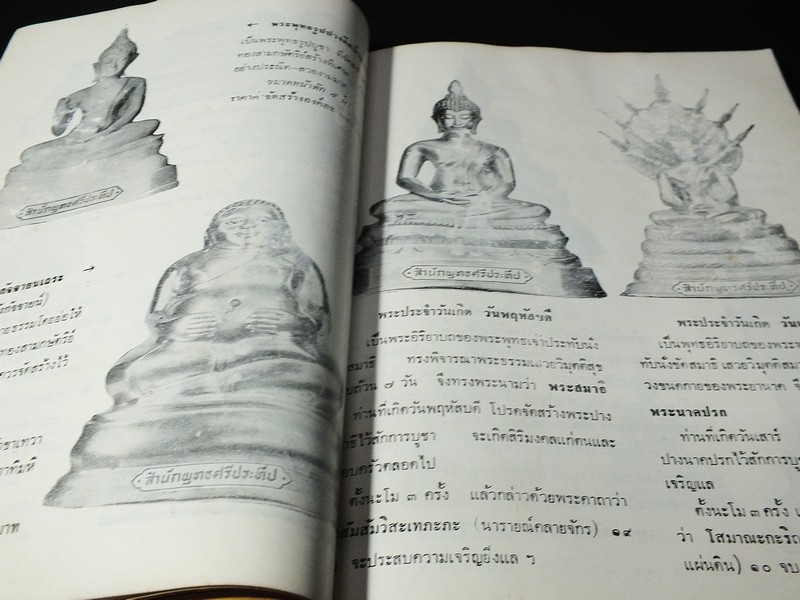 ← พระพุทธรูปปาง
เป็นพระพุทธรูปบูชา
ทองสามกษัตริย์สร้างพิเศษ
อย่างประณีต-สวยงามมาก
ขนาดหน้าตัก ๕ นิ้ว
สำนักพุทธศรีประทีป
→
ทองสามกษัตริย์
ควรจัดสร้างไว้
บาท
สำนักพุทธศรีประทีป
สำนักพุทธศรีประทีป
พระประจำวันเกิด วันพฤหัสบดี
เป็นพระอิริยาบถของพระพุทธเจ้าประทับนั่ง
สมาธิ ทรงพิจารณาพระธรรมเสวยวิมุตติสุข
ถ้วน ๗ วัน จึงทรงพระนามว่า พระสมาธิ
ท่านที่เกิดวันพฤหัสบดี โปรดจัดสร้างพระปาง
ไว้สักการบูชา จะเกิดสิริมงคลแก่ตนและ
ครอบครัวตลอดไป
ตั้งนะโม ๓ ครั้ง แล้วกล่าวด้วยพระคาถาว่า
สัมสัมวิสะเทภะภะ (นารายณ์คลายจักร) ๑๙
จะประสบความเจริญยิ่งแล ๆ
สำนักพุทธศรีประทีป
พระประจำวันเกิด
เป็นพุทธอิริยาบถของพระ
ทับนั่งขัดสมาธิ เสวยวิมุตติสม
วงขนดกายของพระยานาค
พระนาคปรก
ท่านที่เกิดวันเสาร์
ปางนาคปรกไว้สักการบู
เจริญแล
ตั้งนะโม ๓ ครั้ง
ว่า โสมาณะกะริถ
แผ่นดิน) ๑๐ จบ